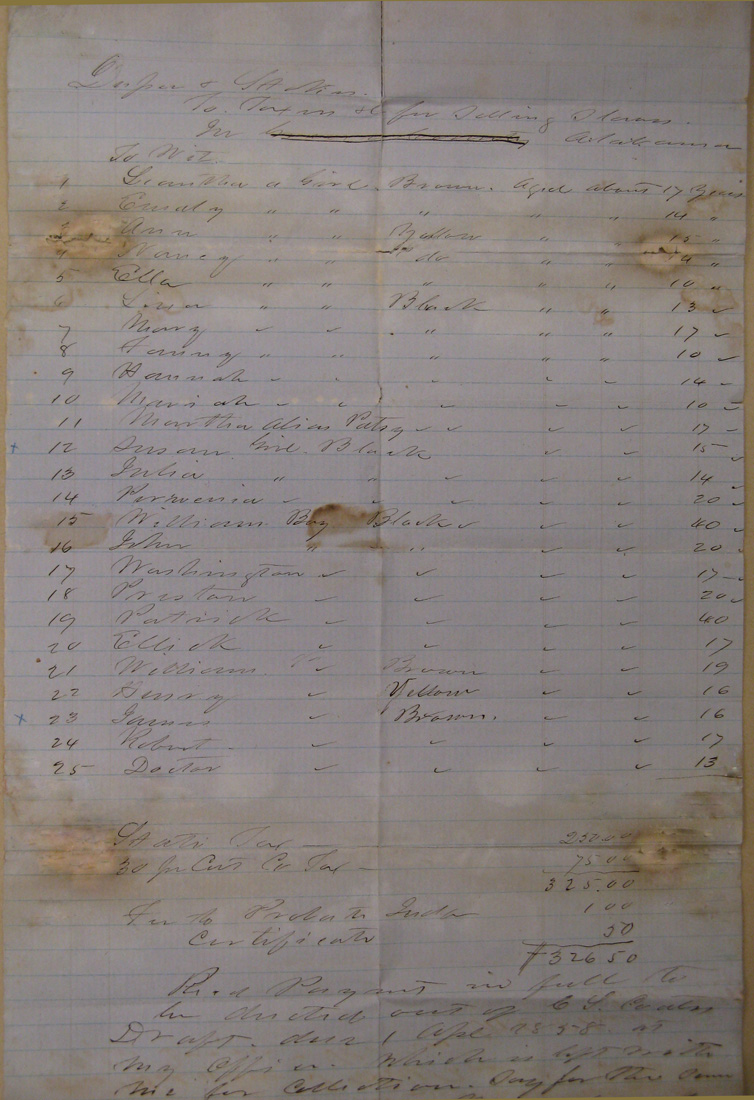 To Taxes &c for Selling Slaves
In Alabama
To Wit.
1 Leantha a Girl Brown. Aged about 17 Years
2 Emaly " " " " " 14 "
3 Ann " " Yellow " " 15 "
4 Nancy " " do " " "
5 Ella " " " " " 10 "
6 " " Black " " 13 "
7 Mary " " " " " 17 "
8 Fanny " " " " " 10 "
9 Hannah " " " " " 14 "
10 Mariah " " " " " 10 "
11 Martha Alias Patsy " " " " 17 "
12 Susan Girl Black " " 15 "
13 Julia " " " " 14 "
14 " " " " 20 "
15 William Boy Black " " 40 "
16 John " " " " 20 "
17 Washington " " " " 17 "
18 Preston " " " " 20 "
19 Patrick " " " " 40
20 Ellick " " " " 17
21 William Brown " " 19
22 Henry " Yellow " " 16
23 James " Brown. " " 16
24 Robert " " " " 17
25 Doctor " " " " 13
State Tax — 250.00
30 pr Cent Co Tax — 75.00
325.00
Fee to Probate Judge 1.00
Certificate 50
$326.50
Recd Payment in full to
be out of
Draft due 1 Apl 1858 at
my office. which is left with
me for Collection. Say for the Sum